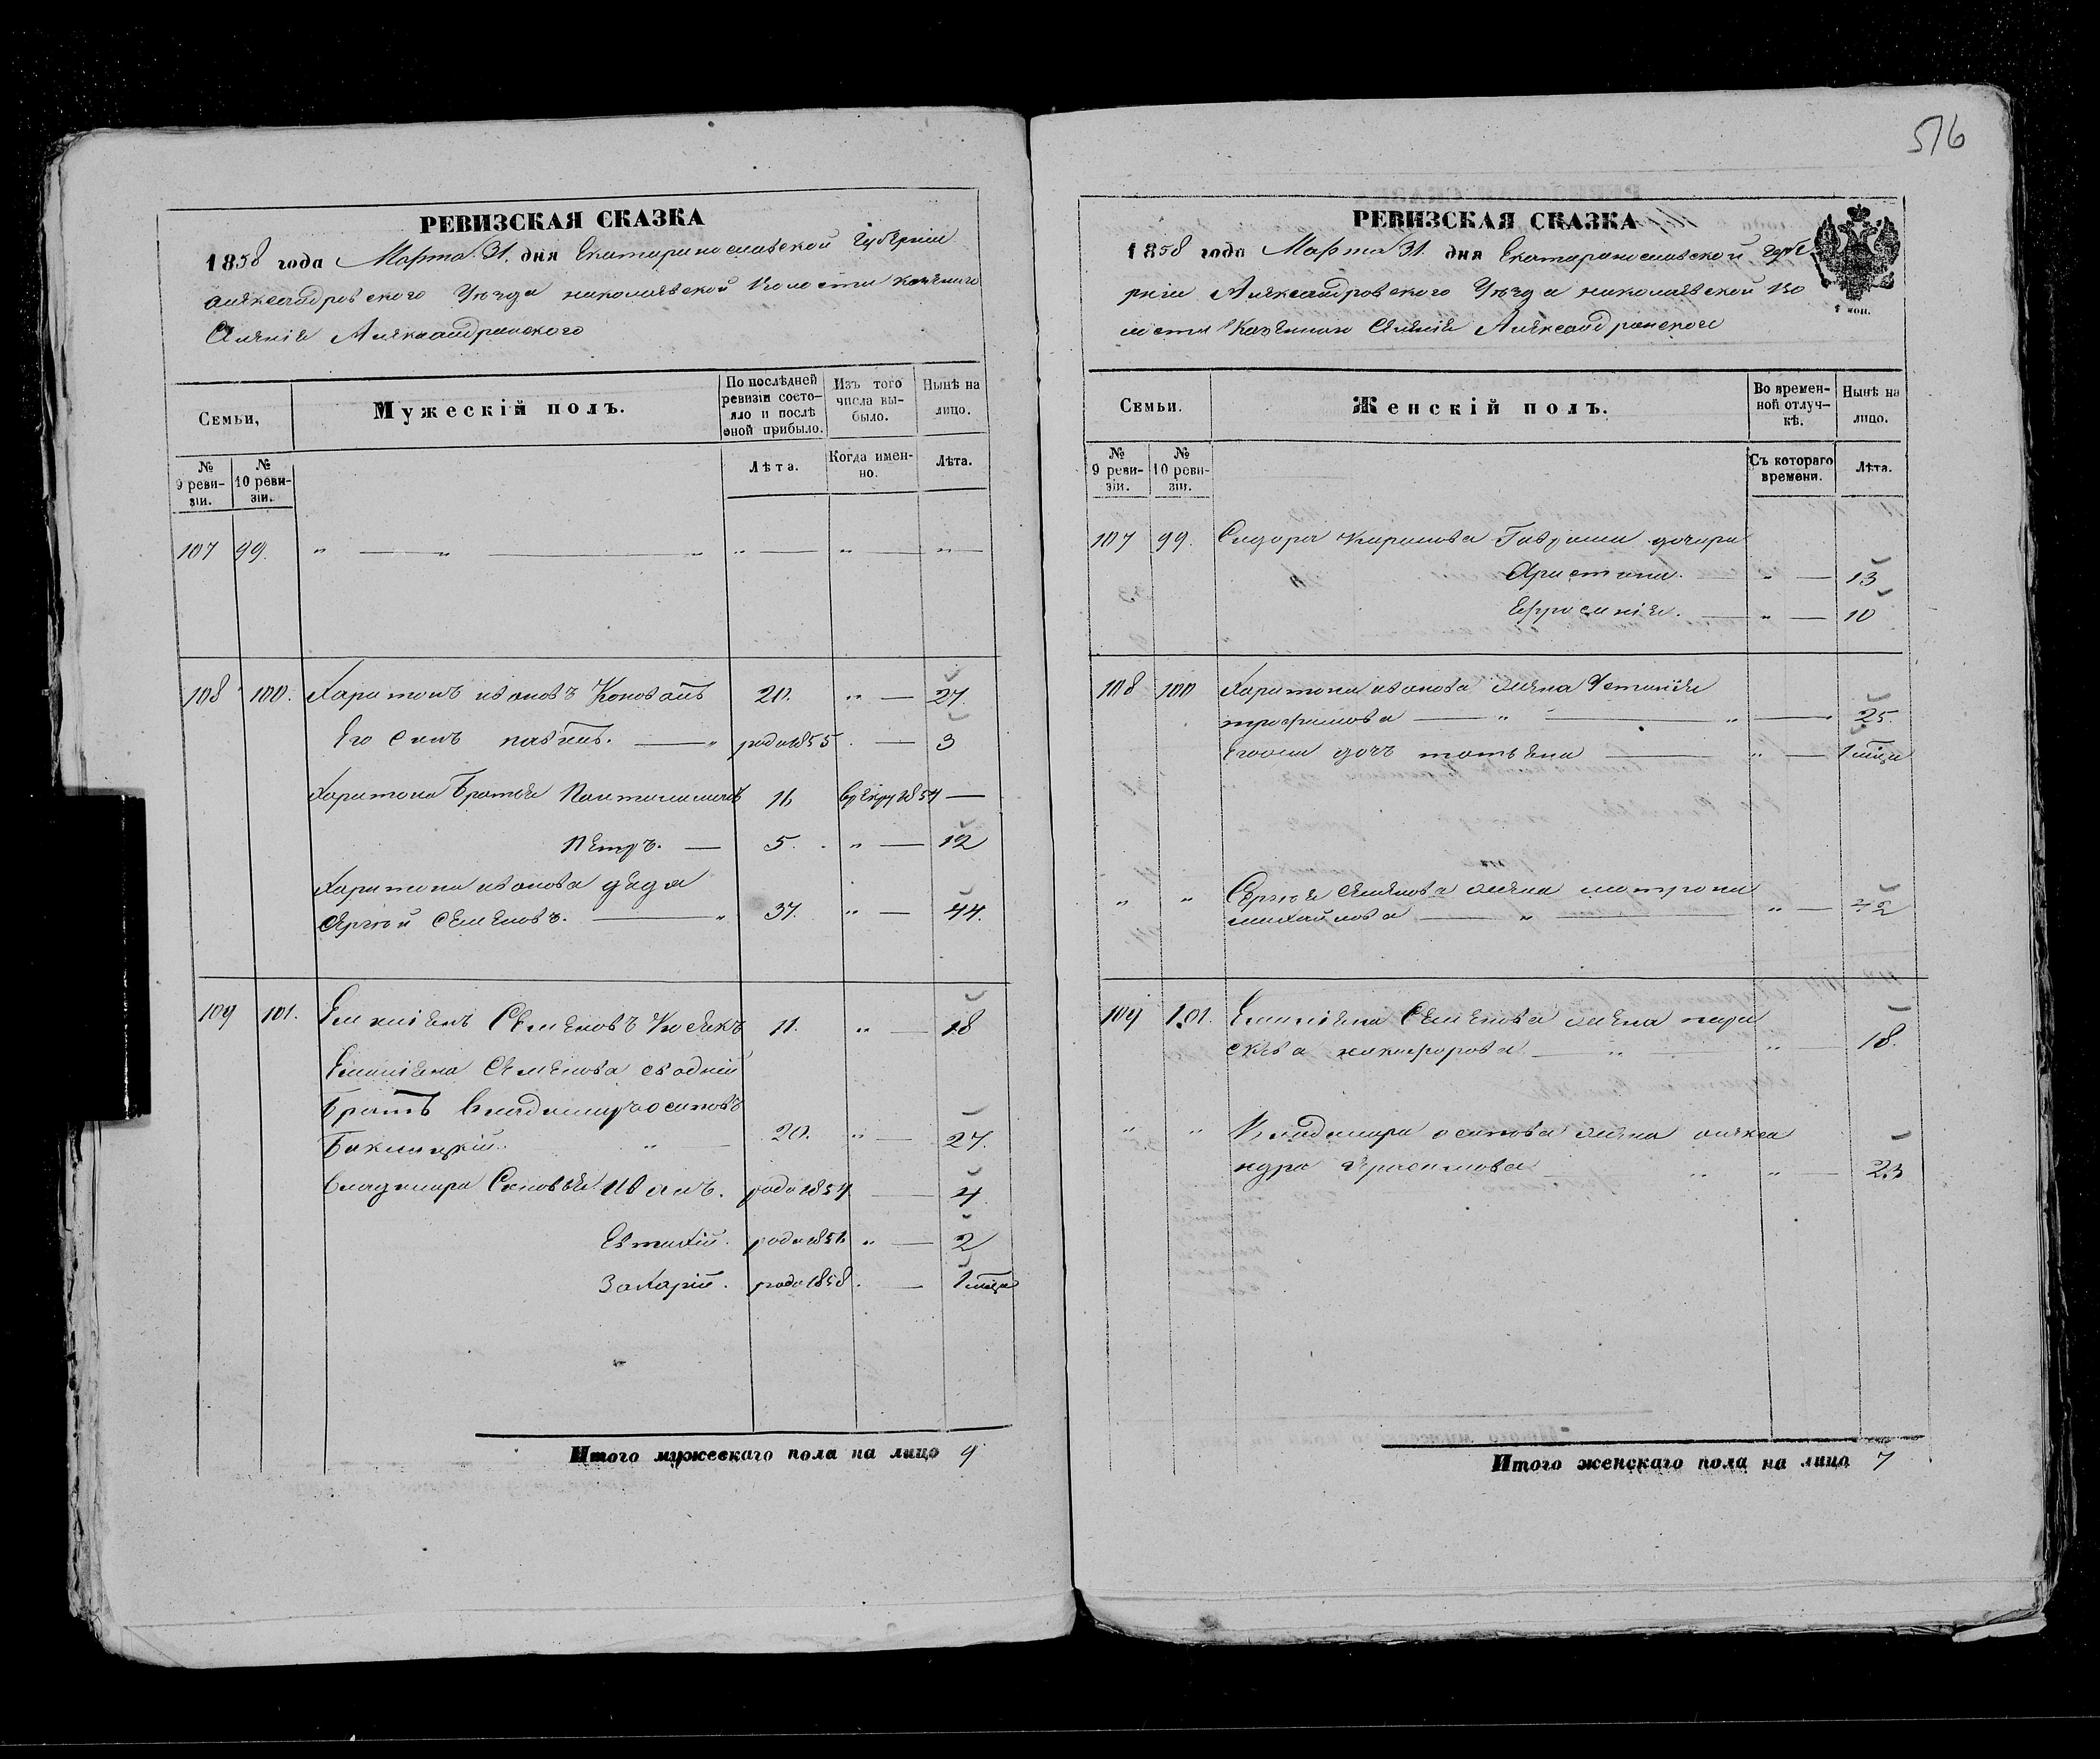 516
РЕВИЗСКАЯ СКАЗКА
1858 года Марта 31. дня Екатеринославской губерніи
Александровского Уѣзда николаевской Волости казенного
Селенія Александровского
Семьи,
Мужескій полъ.
По послѣдней ревизіи состояло и послѣ оной прибыло.
Изъ того числа выбыло.
Нынѣ на лицо.
№ 9 ревизіи.
№ 10 ревизіи.
Лѣта.
Когда именно.
Лѣта.
107 99. " — " — " " — " — " —
108 100. Харитонъ ивановъ Коновалъ 20. " — 27.
Его Сынъ павелъ. — " род. 1855. — 3
Харитона Братья Пантилимонъ 16 врекру 1854 —
Петръ. — 5. " — 12
Харитона иванова дядя
Сергѣй Семеновъ. — " 37. " — 44.
109 101. Емиліянъ Семеновъ 11. " — 18
Емиліяна Семенова сводній
Братъ Владимиръ осиповъ
20. " — 27.
Владимира Сыновья Иванъ. род. 1854 — 4
Евтихій. род. 1856 " — 2
Захарій. род. 1858. — 1 мѣца
Итого мужескаго пола на лицо 9
РЕВИЗСКАЯ СКАЗКА
1858 года Марта 31. дня Екатеринославской губе
рніи Александровского Уѣзда николаевской Во
лости Казенного Селенія Александровского
1 коп.
Семьи.
Женскій полъ.
Во временной отлучкѣ.
Нынѣ на лицо.
№ 9 ревизіи.
№ 10 ревизіи.
Съ котораго времени.
Лѣта.
107 99. Сидора дочери
Христина. — " — 13
Ефросинія. — " — 10
108 100 Харитона иванова жена Устинія
трофимова — " — " — 25.
Егоже дочь татьяна — " — 1 мѣца
" " Сергѣя Семенова жена матрона
михайлова — " — " — 42
109 101. Емиліяна Семенова жена пара
скѣва никифорова — " — " — 18.
" " Владимира осипова жена алекса
ндра Герасимова — " " — 23
Итого женскаго пола на лицо 7